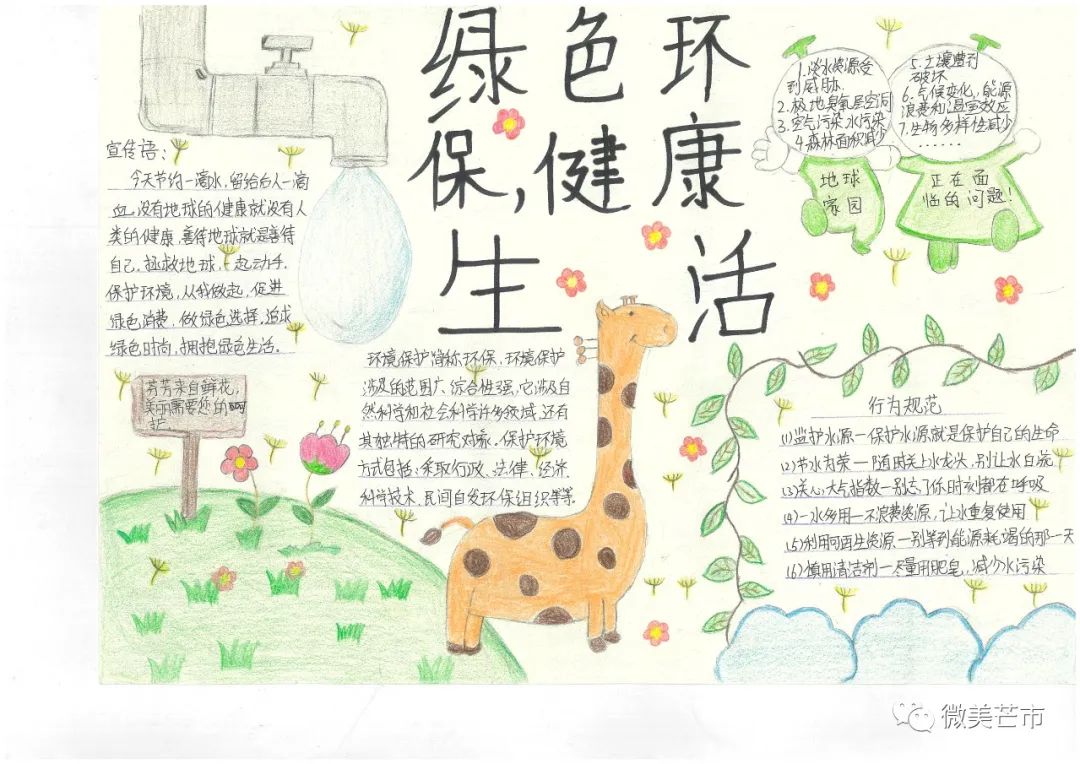 绿色环
保,健康
生活
宣传语:
今天节约一滴水,留给后人一滴
血,没有地球的健康就没有人
类的健康,善待地球就是善待
自己,拯救地球,一起动手.
保护环境,从我做起,促进
绿色消费,做绿色选择,追求
绿色时尚,拥抱绿色生活.
1.淡水资源受
到威胁.
2.极地臭氧层空洞
3.空气污染水污染
4.森林面积减少
地球
家园
5.土壤遭到
破坏.
6.气候变化,能源
浪费和温室效应
7.生物多样性减少
......
正在面
临的问题!
芳芳来自鲜花,
美丽需要您的呵
护.
环境保护简称环保,环境保护
涉及的范围广、综合性强,它涉及自
然科学和社会科学许多领域,还有
其独特的研究对象.保护环境
方式包括:采取行政、法律、经济.
科学技术、民间自发环保组织等等.
行为规范
(1)监护水源—保护水源就是保护自己的生命
(2)节水为荣—随时关上水龙头,别让水白流
(3)关心大气指数—别忘了你时刻都在呼吸
(4)一水多用—不浪费资源,让水重复使用
(5)利用可再生资源—别等到能源耗竭的那一天
(6)慎用清洁剂—尽量用肥皂,减少水污染
微美芒市